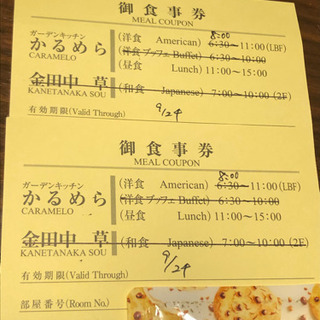 御食事券
MEAL COUPON
8:00
ガーデンキッチン (洋食 American) 6:30~11:00(LBF)
かるめら (洋食ブッフェ Buffet) 6:30~10:00
CARAMELO (昼食 Lunch) 11:00~15:00
金田中 草 (和食 Japanese) 7:00~10:00 (2F)
KANETANAKA SOU
有効期限(Valid Through) 9/24
御食事券
MEAL COUPON
8:00
ガーデンキッチン (洋食 American) 6:30~11:00(LBF)
かるめら (洋食ブッフェ Buffet) 6:30~10:00
CARAMELO (昼食 Lunch) 11:00~15:00
金田中 草 (和食 Japanese) 7:00~10:00 (2F)
KANETANAKA SOU
有効期限(Valid Through) 9/24
部屋番号(Room No.)